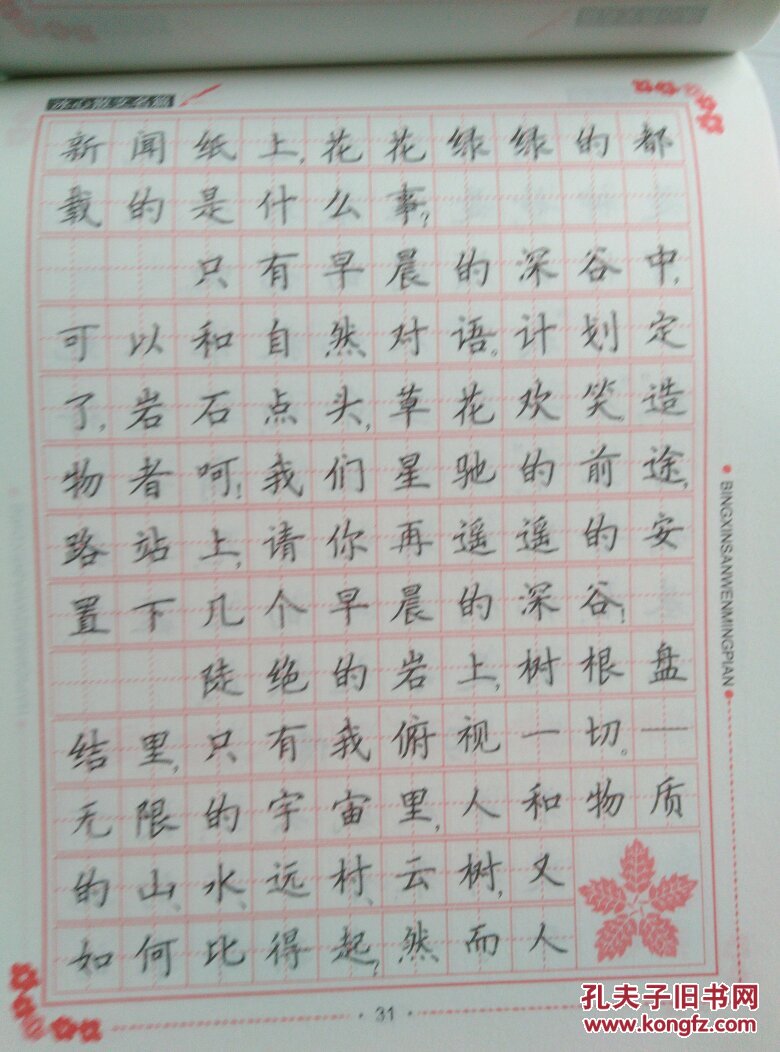 冰心散文名篇
新闻纸上,花花绿绿的都
载的是什么事?
只有早晨的深谷中,
可以和自然对语。计划定
了,岩石点头,草花欢笑。造
物者呵!我们星驰的前途,
路站上,请你再遥遥的安
置下几个早晨的深谷!
陡绝的岩上,树根盘
结里,只有我俯视一切。—
无限的宇宙里,人和物质
的山、水、远村、云树,又
如何比得起?然而人
BINGXINSANWENMINGPIAN
·31·
孔夫子旧书网
www.kongfz.com